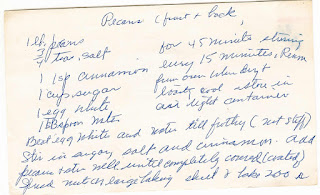 Pecans (front + back,
1 lb. pecans
3/4 teas. salt
1 tsp cinnamon
1 cup sugar
1 egg white
1 Tabspoon water
for 45 minutes stirring
every 15 minutes, Remove
from oven when dry &
looks cool store in
air tight container
Beat egg white and water till frothy (not stiff)
Stir in sugar, salt and cinnamon. Add
pecans + stir well until completely covered (coated)
Spread nuts on large baking sheet & bake 200°